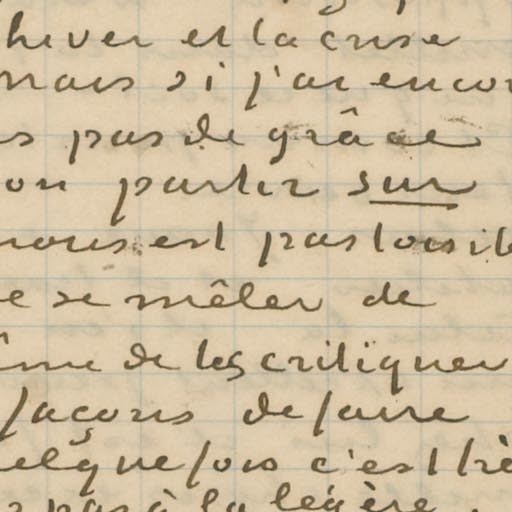 hiver et la crise
mais si j'ai encor
s pas de grâce
ou partir sur
nous est pas loisib
e se mêler de
ime de les critiquer
façons de faire
elque fois c'est trè
r pas à la légère.